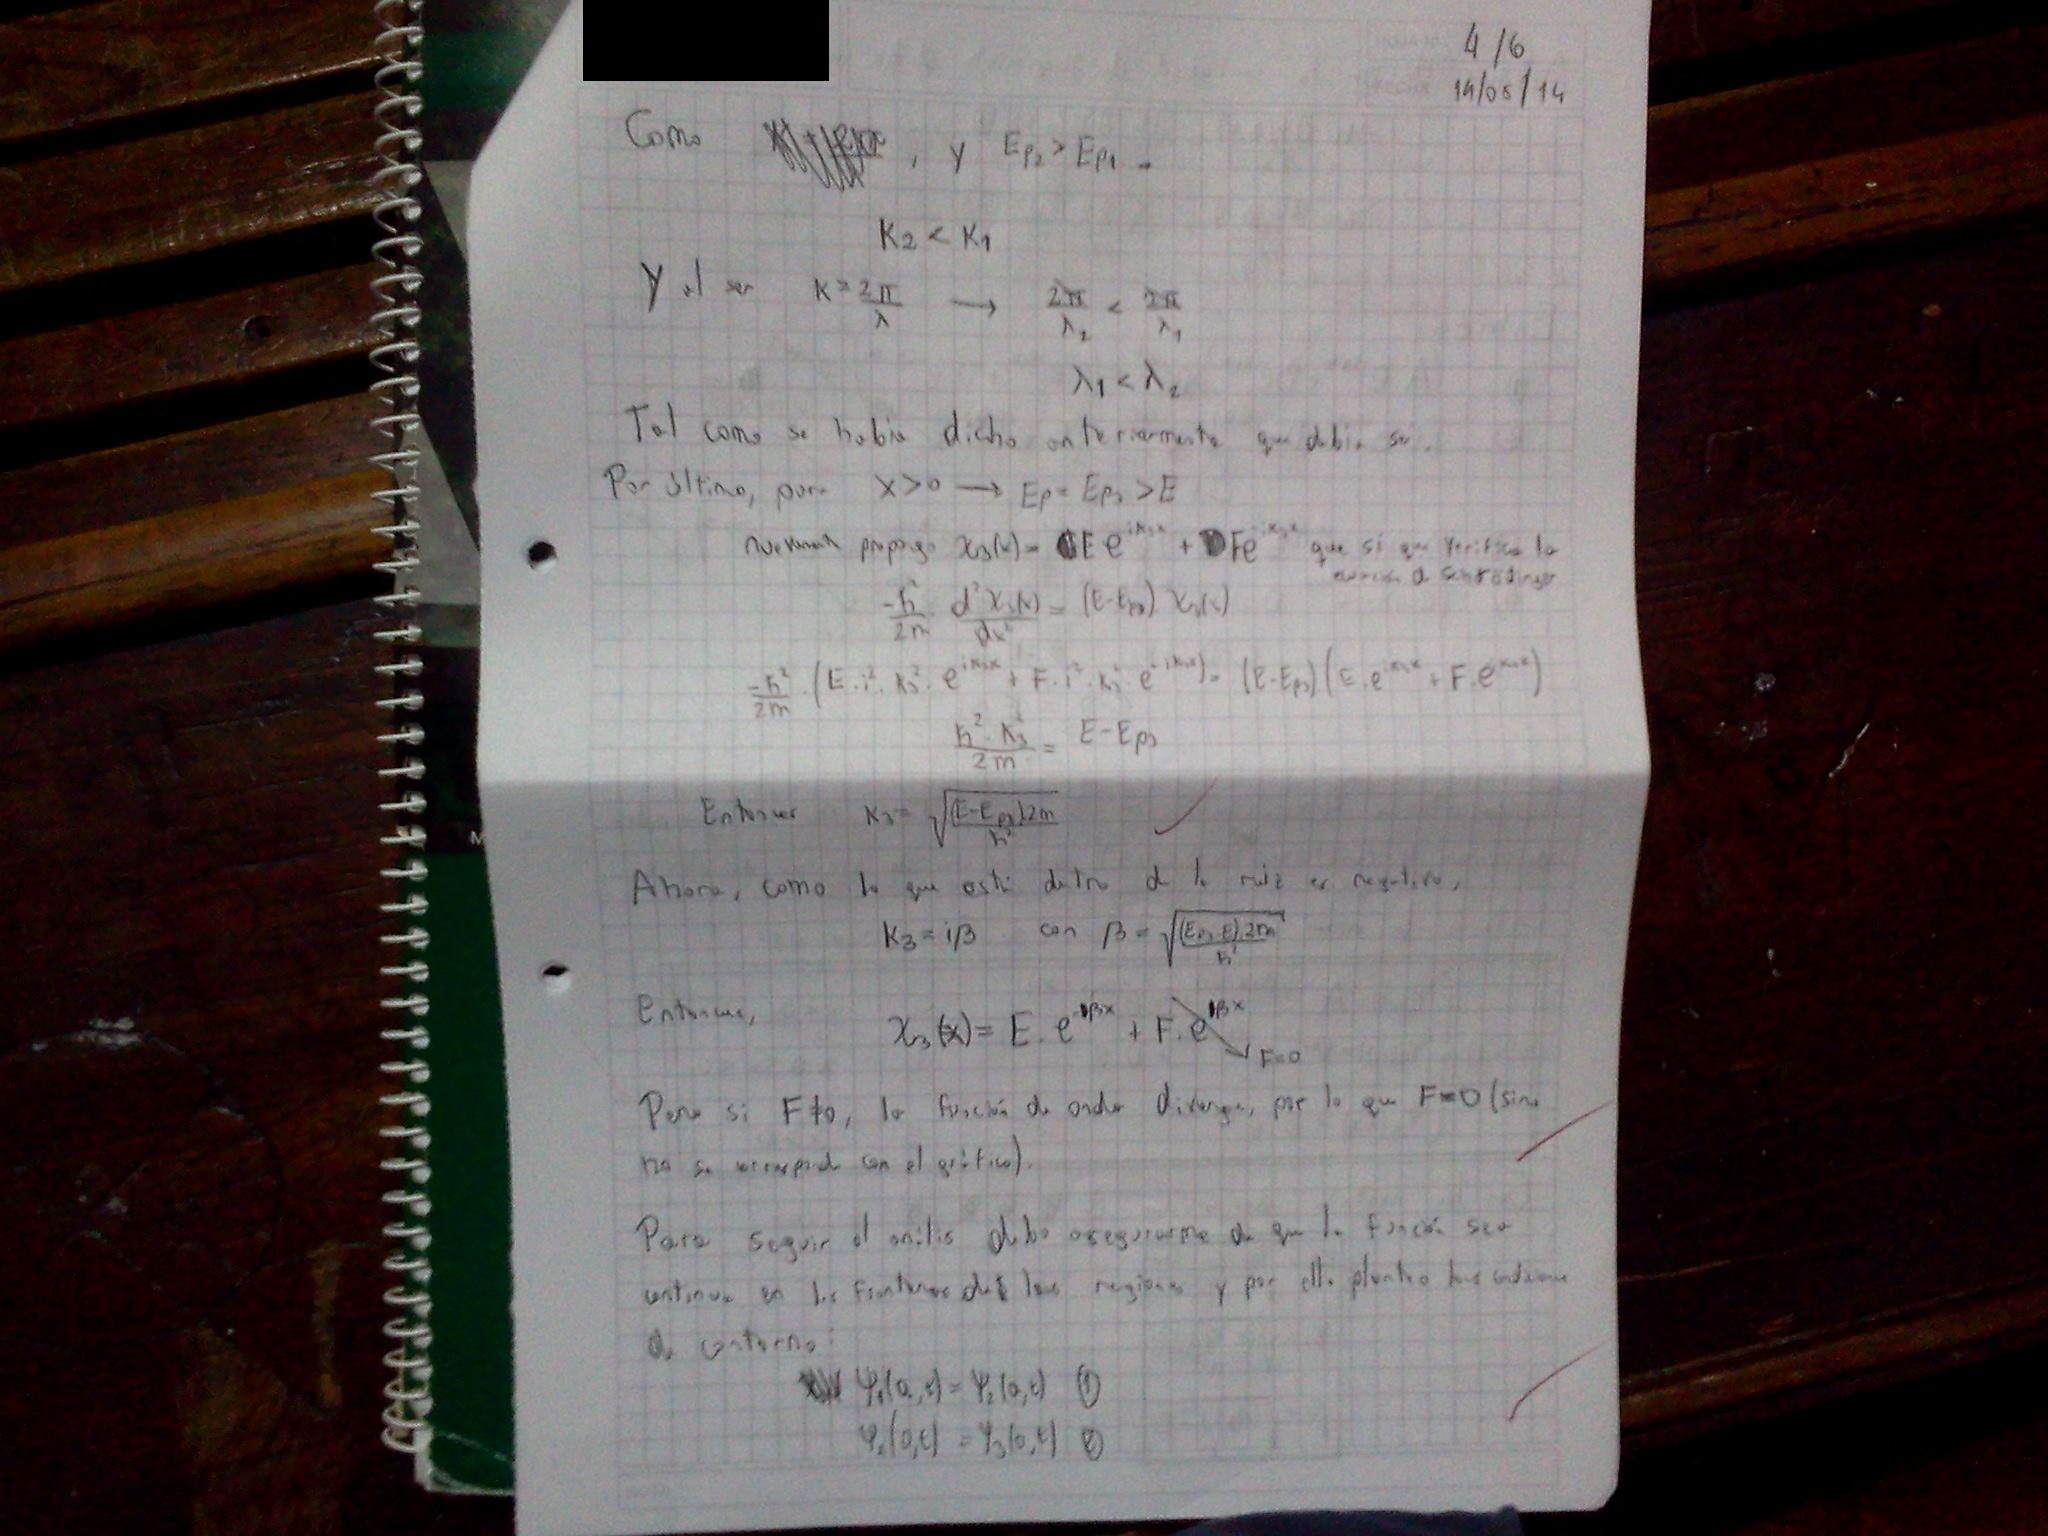 4/6
14/05/14
Como , y Ep₂ > Ep₁.
K₂ < K₁
Y al ser K = 2π/λ → 2π/λ₂ < 2π/λ₁
λ₁ < λ₂
Tal como se había dicho anteriormente que debía ser.
Por último, para x>0 → Ep = Ep₃ > E
nuevamente propongo χ₃(x) = E e^{ik₃x} + F e^{-ik₃x} que sí que verifica la
ecuación de Schrödinger
-ħ²/2m d²χ₃(x)/dx² = (E-Ep₃) χ₃(x)
-ħ²/2m · (E·i²·K₃²·e^{ik₃x} + F·i²·K₃²·e^{-ik₃x}) = (E-Ep₃)(E·e^{ik₃x} + F·e^{-ik₃x})
ħ²·K₃²/2m = E-Ep₃
Entonces K₃ = √((E-Ep₃)2m/ħ²)
Ahora, como lo que está dentro de la raíz es negativo,
K₃ = iβ con β = √((Ep₃-E)·2m/ħ²)
Entonces, χ₃(x) = E·e^{-βx} + F·e^{βx}
F=0
Pero si F≠0, la función de onda diverge, por lo que F=0 (sino
no se corresponde con el gráfico).
Para seguir el análisis debo asegurarme de que la función sea
continua en las fronteras de las regiones y por ello planteo las condiciones
de contorno:
Ψ₁(a,t) = Ψ₂(a,t) ①
Ψ₂(0,t) = Ψ₃(0,t) ②